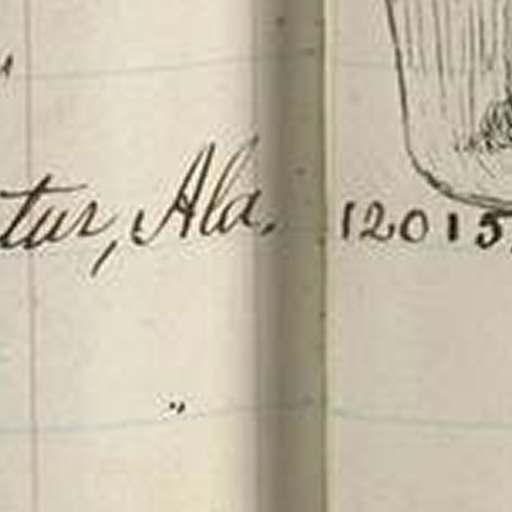 tur, Ala. 12015.
"